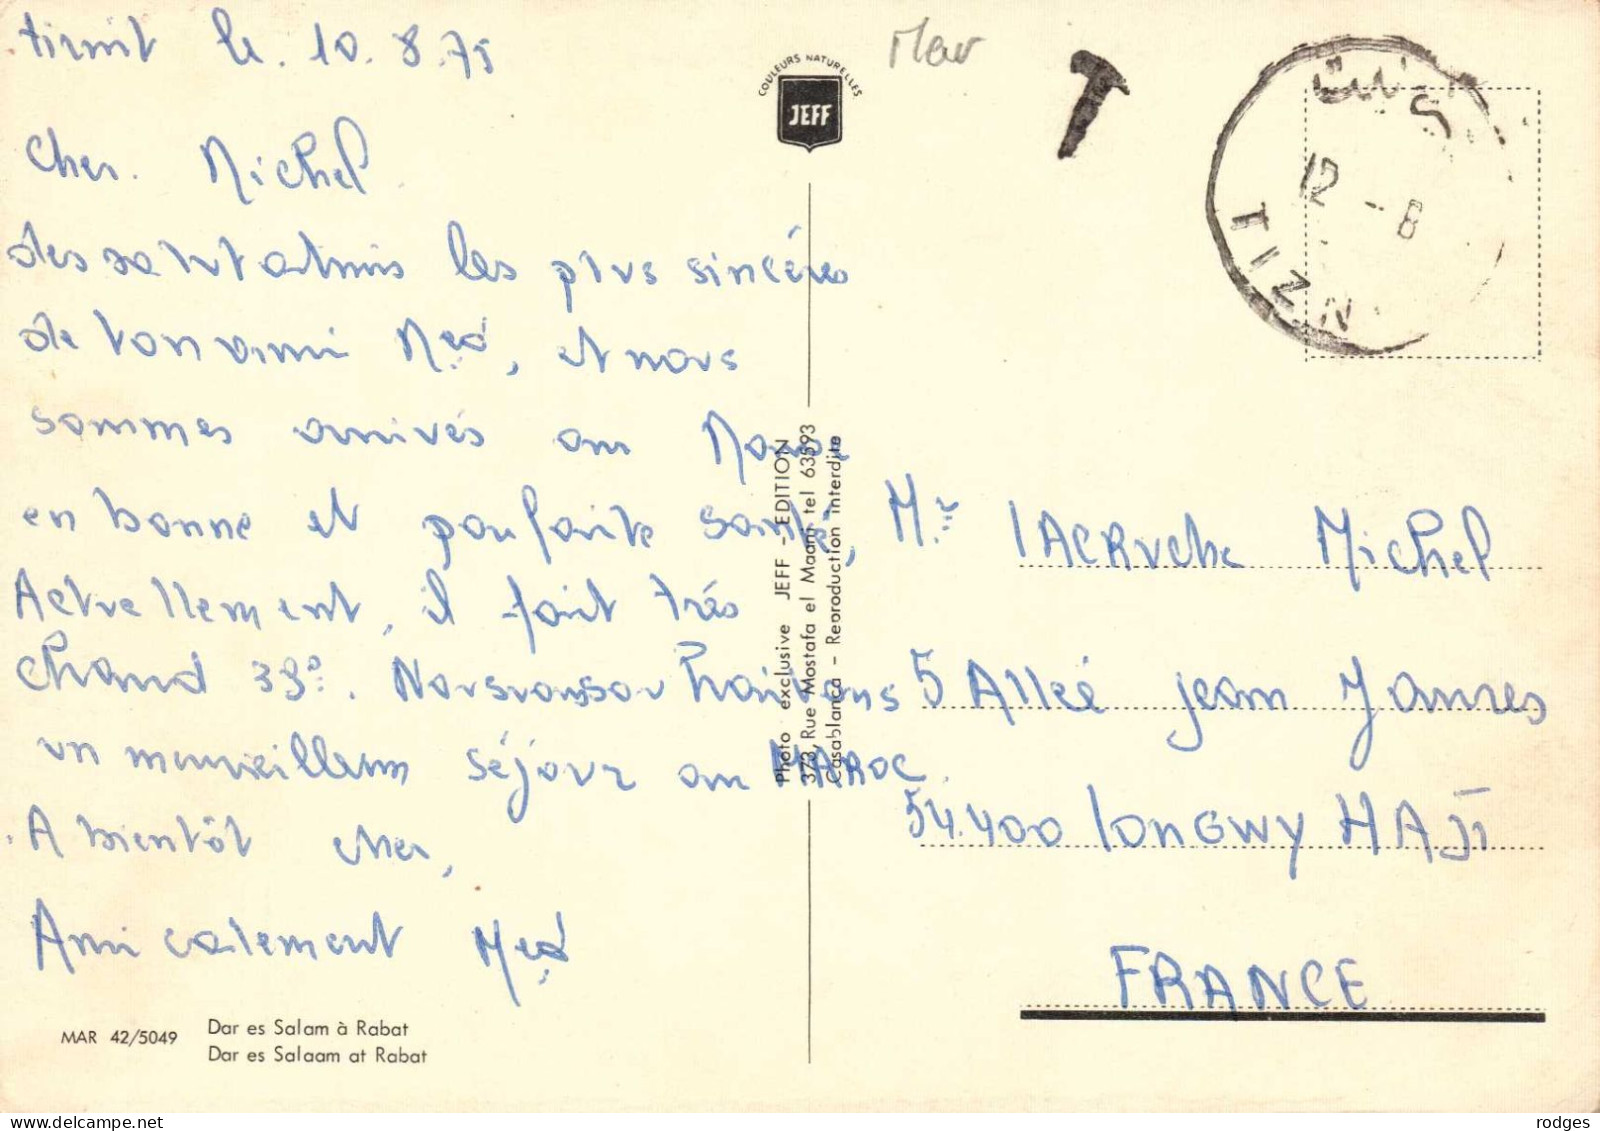 tiznit le. 10. 8. 75
Cher. Michel
des salutations les plus sincéres
de ton ami Med, et nous
sommes arrivés au Maroc
en bonne et parfaite santé,
Actuellement, il fait trés
Chaud 39°. Nous vous souhaitons
un merveilleux séjour au MAROC.
A bientôt cher,
Amicalement Med
MAR 42/5049
Dar es Salam à Rabat
Dar es Salaam at Rabat
COULEURS NATURELLES
JEFF
Photo exclusive JEFF - EDITION
373, Rue Mostafa el Maani tel 63593
Casablanca - Reproduction interdite
Mar
T
12 - 8
TIZN
Mr Michel
5 Allée Jean Jaures
54.400 longwy HAJT
FRANCE
rodges